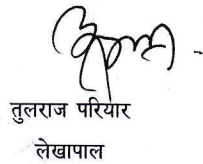 तुलराज परियार
लेखापाल